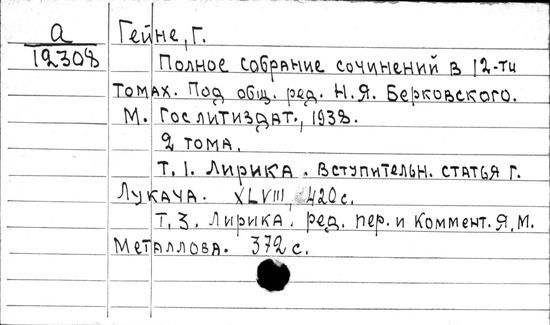 а
12308
Гейне, Г.
Полное собрание сочинений в 12-ти
томах. Под общ. ред. Н.Я. Берковского.
М. Гослитиздат., 1938.
2 тома.
Т. 1. Лирика. Вступительн. статья Г.
Лукача. XLVIII, 420 с.
Т. 3. Лирика. ред. пер. и коммент. Я. М.
Металлова. 372 с.